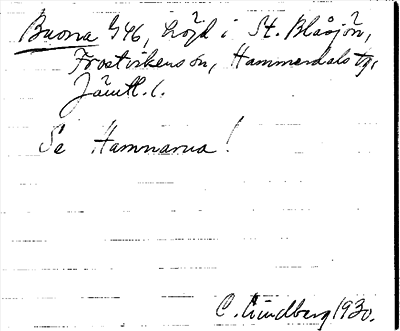 Buorra 546, höjd i St. Blåsjön,
Frostvikens sn, Hammerdals tg,
Jämtl. l.
Se Hamnarna!
C. Lindberg 1930.